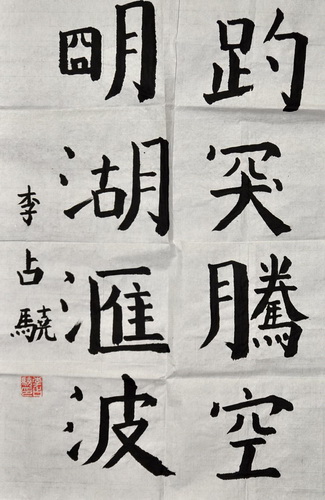 趵突騰空
明湖滙波
李占驍